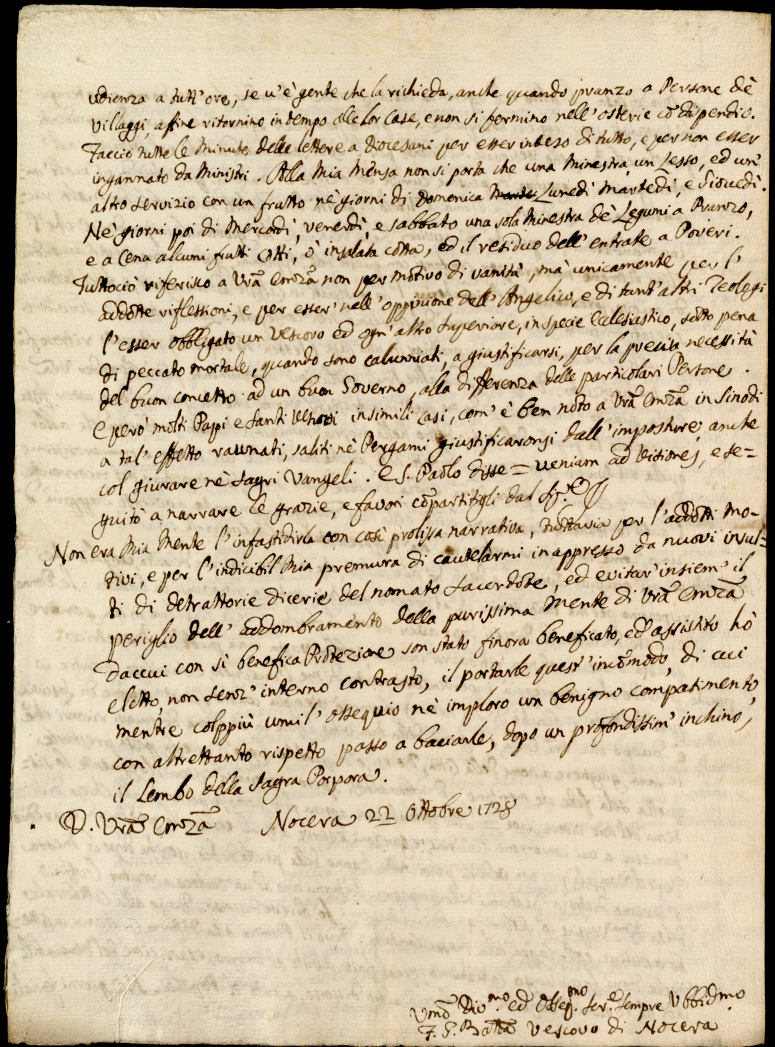 udienza a tutt'ore, se v'è gente che la richieda, anche quando pranzo a Persone dè
Villaggi, affine ritornino in tempo alle lor Case, e non si fermino nell'osterie cõ dispendio.
Faccio tutte le minute delle lettere a Diocesani per esser inteso di tutto, e per non esser
ingannato da Ministri. Alla Mia Mensa non si porta che una Minestra, un lesso, ed un'
altro servizio con un frutto nè giorni di Domenica Lunedì Martedì, e Giovedì.
Nè giorni poi di Mercordì, Venerdì, e Sabbato una sola Minestra dè Legumi a Pranzo,
e a Cena alcuni frutti Cotti, ò insalata cotta, ed il residuo dell'entrate a Poveri.
Tuttociò riferisco a Vrã Emzã non per motivo di vanità, mà unicamente per l'
addotte riflessioni, e per esser nell'oppinione dell'Angelico, e di tant'altri Teologi
l'esser obbligato un Vescovo ed ogn'altro Superiore, in specie Ecclesiastico, sotto pena
di peccato mortale, quando sono calunniati, a giustificarsi, per la precisa necessità
del buon concetto ad un buon Governo, alla differenza delle particolari Persone.
E però molti Papi e Santi Vescovi in simili Casi, com'è ben noto a Vrã Emzã in Sinodi
a tal'effetto raunati, saliti nè Pergami giustificaronsi dall'imposture, anche
col giurare nè Sagri Vangeli. E S. Paolo disse = veniam ad visiones, e se=
guitò a narrare le grazie, e favori cõpartitigli dal Sig.re
Non era Mia Mente l'infastidirla con così prolissa narrativa, tuttavia per l'addotti Mo-
tivi, e per l'indicibil Mia premura di cautelarmi in appresso da nuovi insul=
ti di detrattorie dicerie del nomato Sacerdote, ed evitar'insiem'il
periglio dell'addombramento della purissima Mente di Vrã Emzã
daccui con sì benefica Protezione son stato finora beneficato, ed assistito hò
eletto, non senz'interno contrasto, il portarle quest'incõmodo, di cui
mentre colppiù umil'ossequio nè imploro un benigno compatimento,
con altrettanto rispetto passo a baciarle, dopo un profondissim'inchino,
il Lembo della Sagra Porpora.
D. Vrã Emzã Nocera 22 Ottobre 1728
Umõ Div.mo ed Osseq.mo Ser.e sempre Ubbidmo
F. G. Batta Vescovo di Nocera